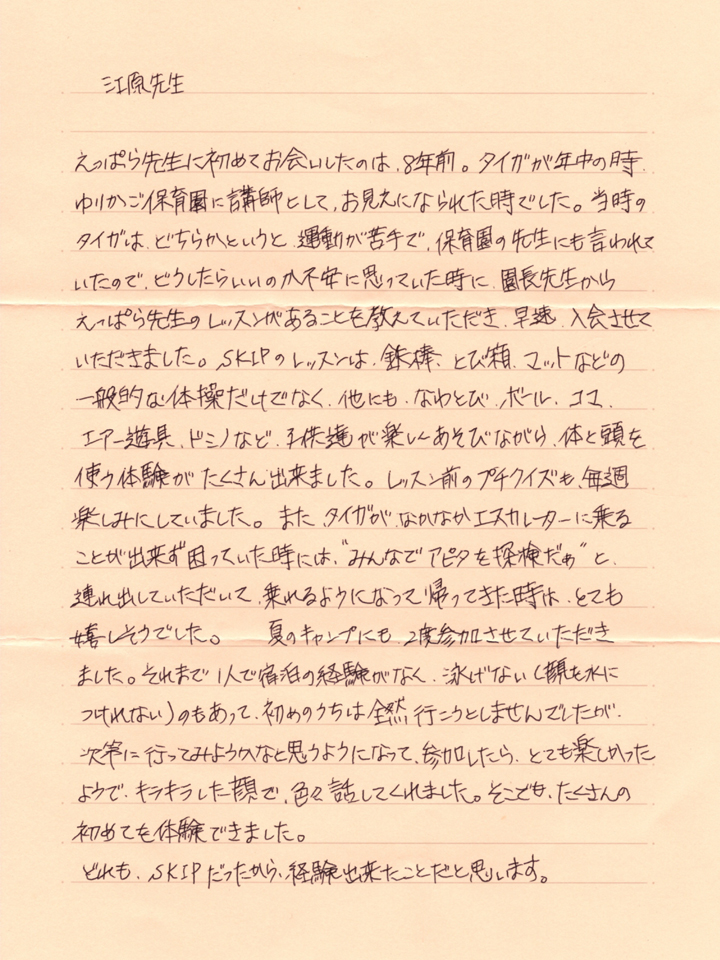 江原先生
えっぱら先生に初めてお会いしたのは、8年前。タイガが年中の時、
ゆりかご保育園に講師として、お見えになられた時でした。当時の
タイガは、どちらかというと、運動が苦手で、保育園の先生にも言われて
いたので、どうしたらいいのか不安に思っていた時に、園長先生から
えっぱら先生のレッスンがあることを教えていただき、早速、入会させて
いただきました。SKIPのレッスンは、鉄棒、とび箱、マットなどの
一般的な体操だけでなく、他にも、なわとび、ボール、コマ、
エアー遊具、ドミノなど、子供達が楽しくあそびながら、体と頭を
使う体験がたくさん出来ました。レッスン前のプチクイズも、毎週
楽しみにしていました。また、タイガが、なかなかエスカレーターに乗る
ことが出来ず困っていた時には、"みんなでアピタを探検だぁ"と、
連れ出していただいて、乗れるようになって帰ってきた時は、とても
嬉しそうでした。 夏のキャンプにも、2度参加させていただき
ました。それまで1人で宿泊の経験がなく、泳げない(顔を水に
つけれない)のもあって、初めのうちは全然行こうとしませんでしたが、
次第に行ってみようかなと思うようになって、参加したら、とても楽しかった
ようで、キラキラした顔で、色々話してくれました。そこでも、たくさんの
初めてを体験できました。
どれも、SKIPだったから、経験出来たことだと思います。